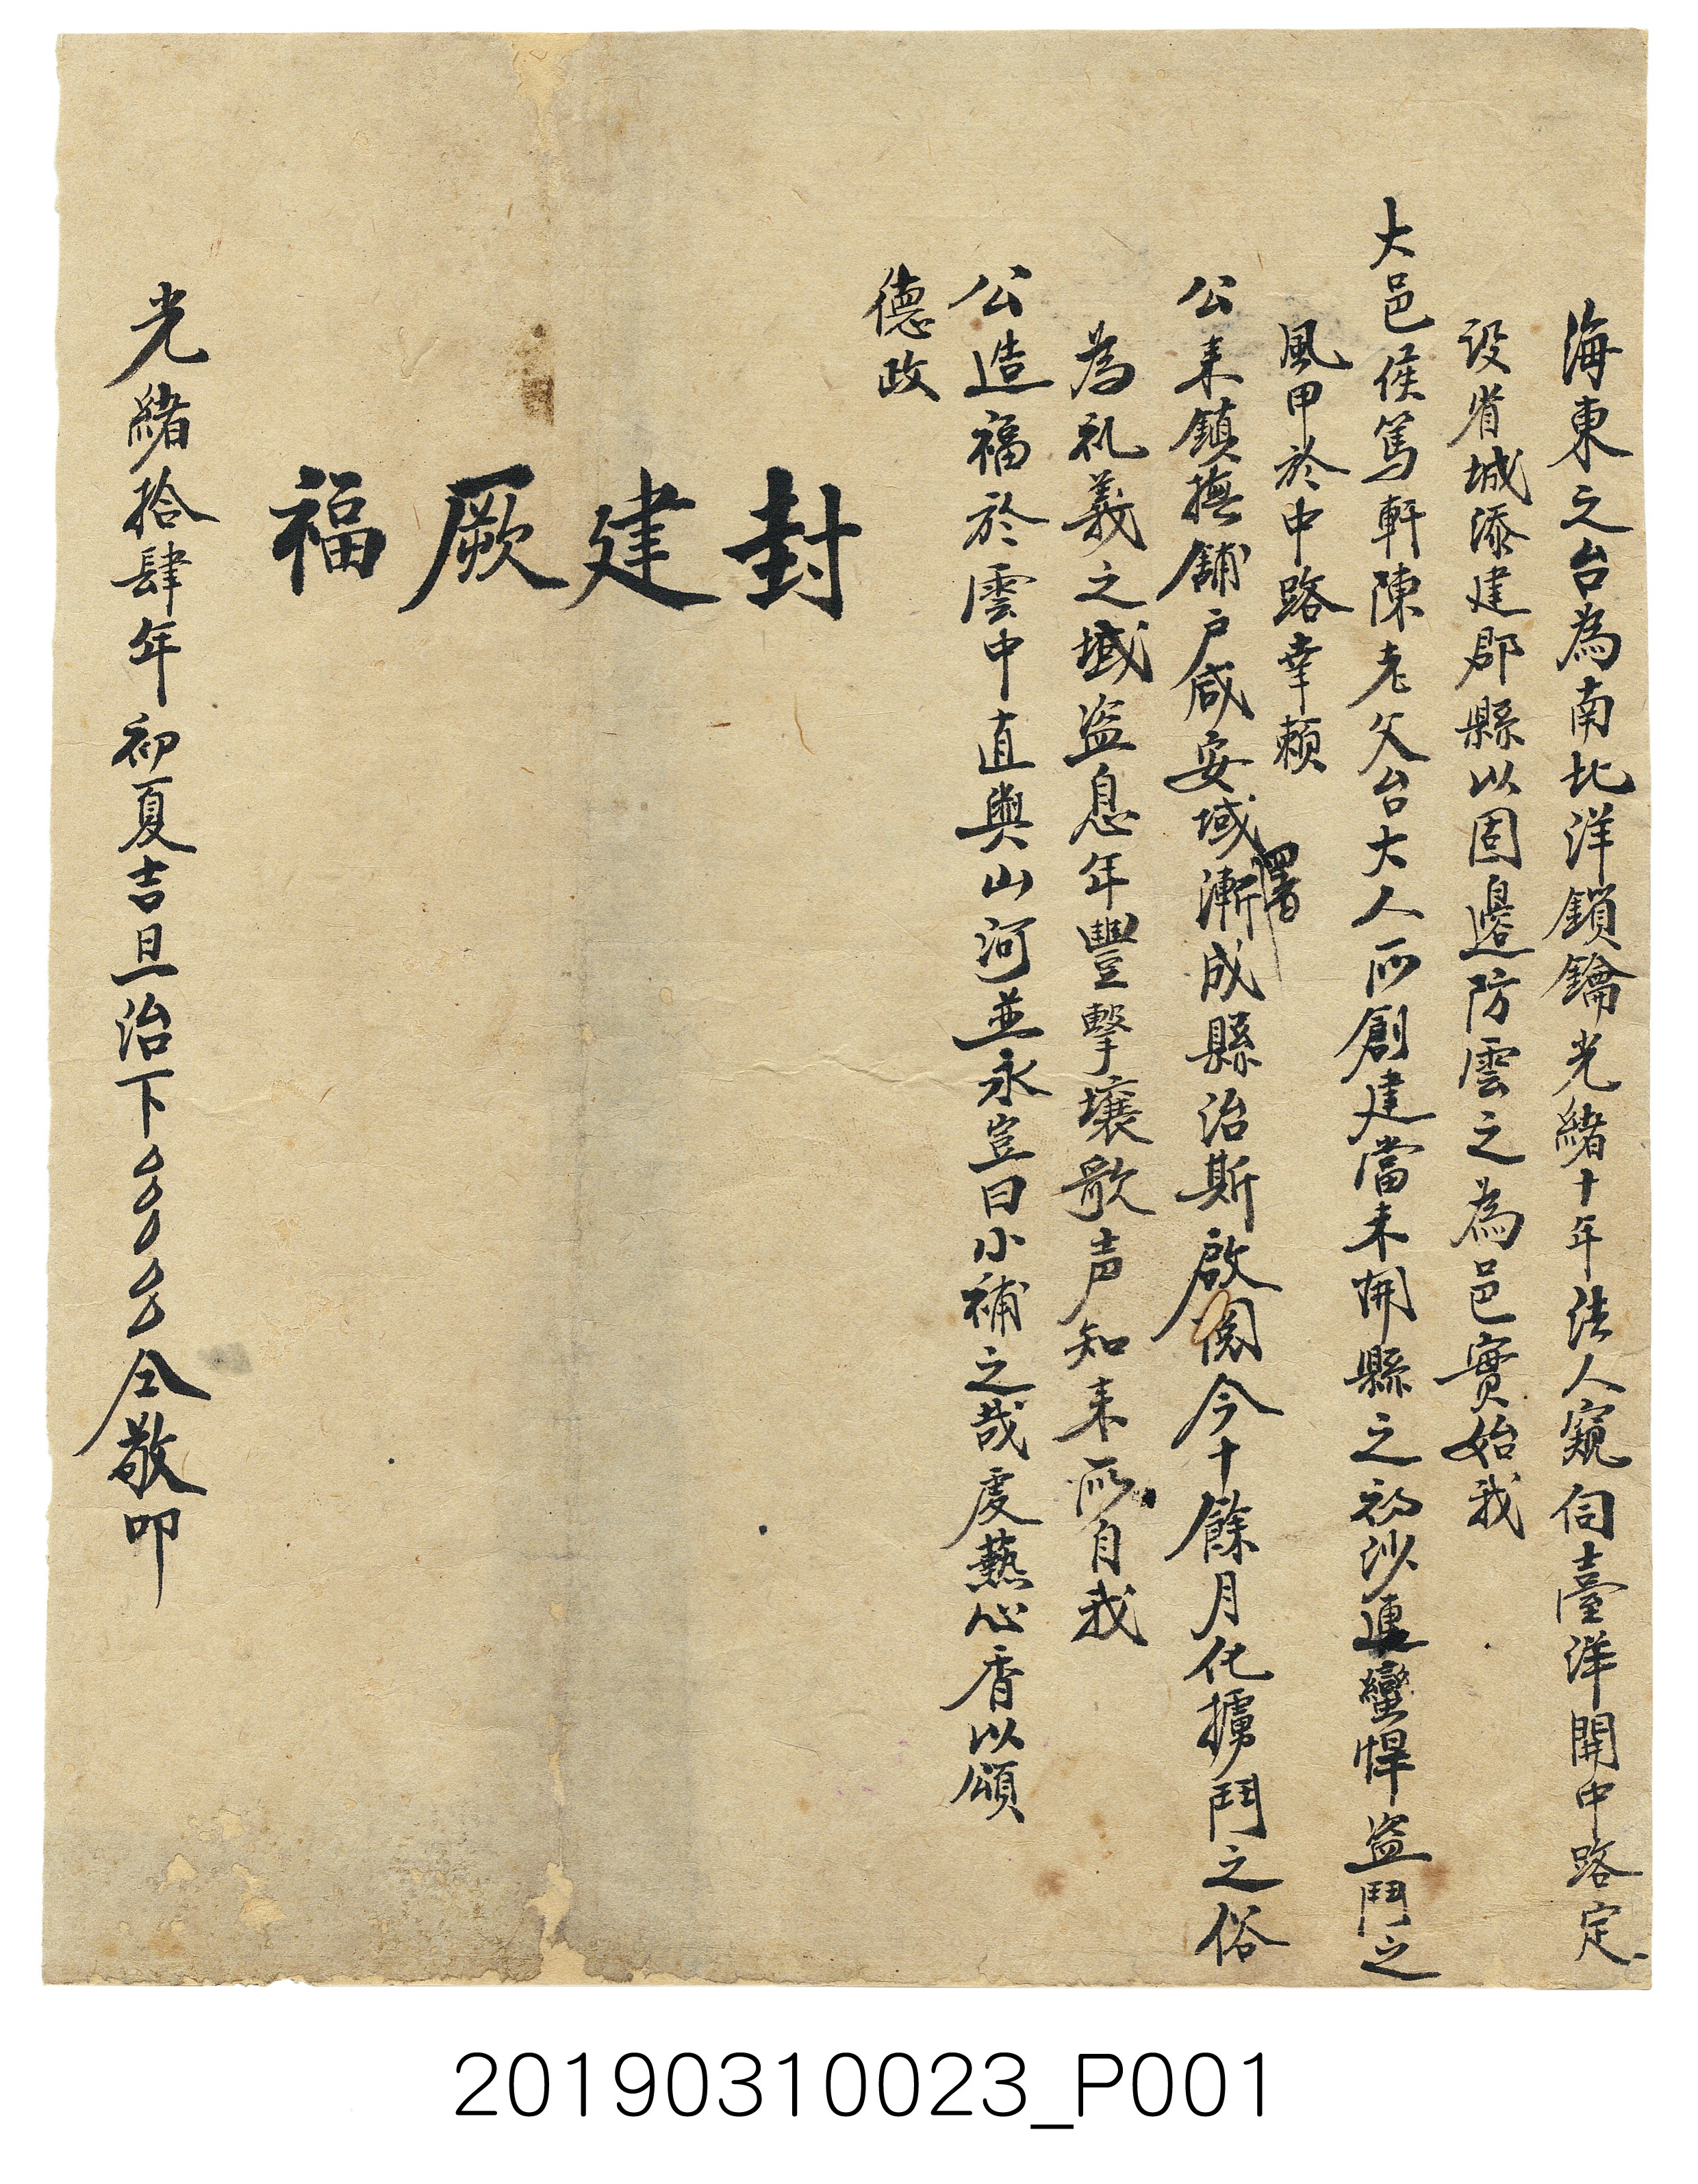 海東之台為南北洋鎖鑰光緒十年法人窺伺臺洋開中路定
設省城添建郡縣以固邊防雲之為邑實始我
大邑侯篤軒陳老父台大人所創建當未開縣之初沙連蠻悍盜鬥之
風甲於中路幸賴
公来鎮撫舖戶咸安域漸成縣治斯啟閱今十餘月化擄鬥之俗
署
為礼義之域盜息年豐擊壤歌声知来所自我
公造福於雲中直與山河並永豈曰小補之哉虔爇心香以頌
德政
封建厥福
光緒拾肆年初夏吉旦治下仝敬叩
20190310023_P001